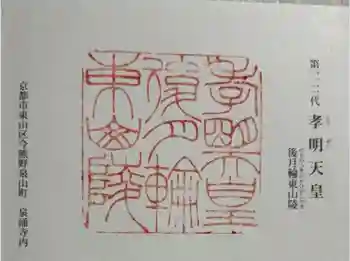 第一二一代 孝明天皇
後月輪東山陵
孝明天皇
後月輪
東山陵
京都市東山区今熊野泉山町 泉涌寺内